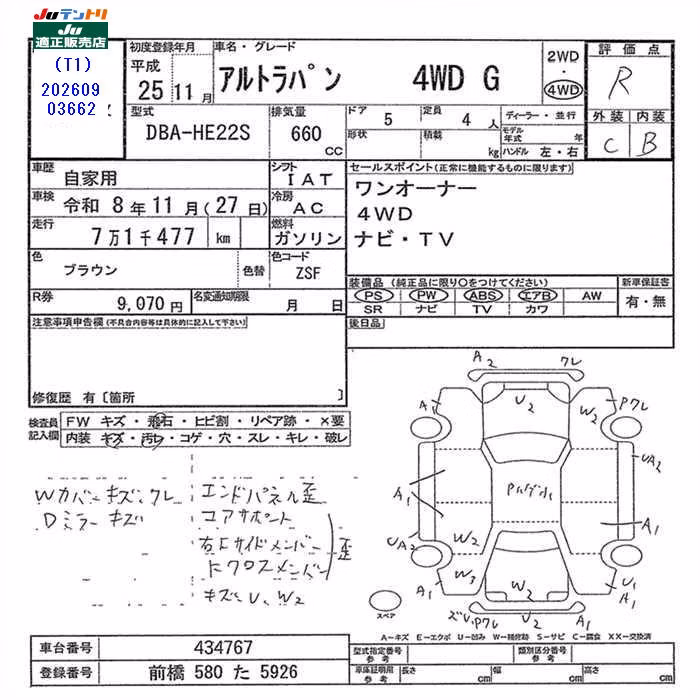 Juテントリ
Ju
適正販売店
(T1)
202609
03662
初度登録年月
平成
25 11 月
車名・グレード
アルトラパン 4WD G
2WD
・
4WD
評価点
R
外装 内装
C B
型式
DBA-HE22S
排気量
660
CC
ドア
5
定員
4 人
形状
積載
kg
ディーラー・並行
モデル年式 年
ハンドル 左・右
車歴
自家用
シフト
IAT
車検
令和 8年11月(27日)
冷房
AC
走行
7万1千477 km
燃料
ガソリン
色
ブラウン
色替
色コード
ZSF
R券
9,070 円
名変通知期限
月 日
セールスポイント(正常に機能するものに限ります)
ワンオーナー
4WD
ナビ・TV
装備品 (純正品に限り〇をつけてください)
PS PW ABS エアB AW
SR ナビ TV カワ
新車保証書
有・無
後日品
注意事項申告欄(不具合内容等は具体的に記入して下さい)
修復歴 有〔箇所 〕
検査員
記入欄
FW キズ・飛石・ヒビ割・リペア跡・×要
内装 キズ・汚レ・コゲ・穴・スレ・キレ・破レ
Wカバーキズ、ワレ
Dミラーキズ
エンドパネル歪
コアサポート
右下サイドメンバー
下クロスメンバー
歪
キズ、U、W2
A2 ワレ
A1 U2 W2 Pワレ
UA2
A1
A1
UA2 W2
A1 W3 W2 U1
A1
スペア
A―キズ E―エクボ U―凹み W―補修跡 S―サビ C―腐食 XX―交換済
車台番号 434767
登録番号 前橋 580 た 5926
型式指定番号
参考
類別区分番号
参考
車庫証明用
参考
長さ cm 幅 cm 高さ cm